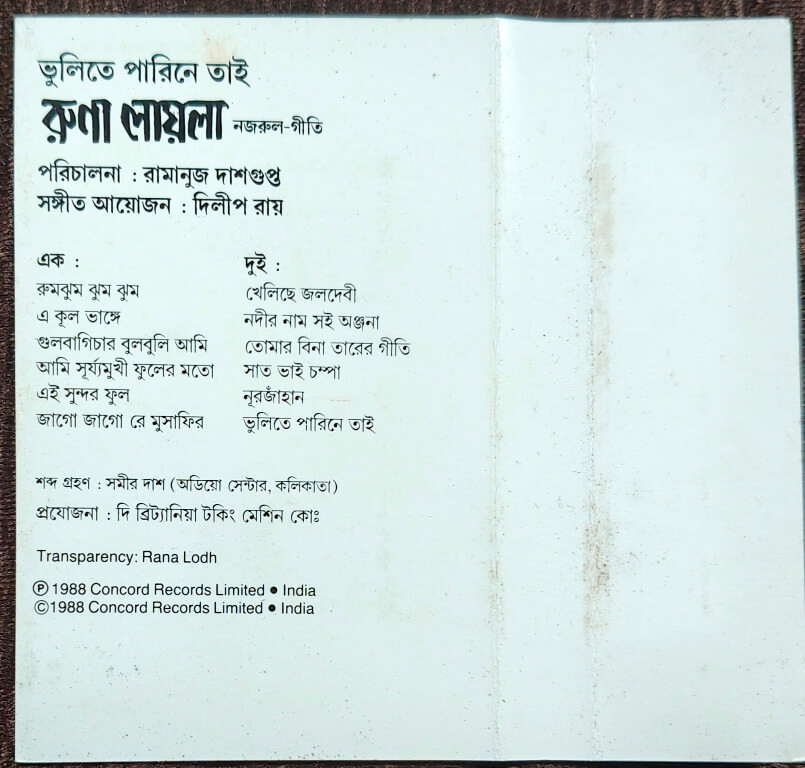 ভুলিতে পারিনে তাই
রুণা লায়লা নজরুল-গীতি
পরিচালনা : রামানুজ দাশগুপ্ত
সঙ্গীত আয়োজন : দিলীপ রায়
এক :
রুমঝুম ঝুম ঝুম
এ কূল ভাঙ্গে
গুলবাগিচার বুলবুলি আমি
আমি সূর্য্যমুখী ফুলের মতো
এই সুন্দর ফুল
জাগো জাগো রে মুসাফির
দুই :
খেলিছে জলদেবী
নদীর নাম সই অঞ্জনা
তোমার বিনা তারের গীতি
সাত ভাই চম্পা
নূরজাঁহান
ভুলিতে পারিনে তাই
শব্দ গ্রহণ : সমীর দাশ (অডিয়ো সেন্টার, কলিকাতা)
প্রযোজনা : দি ব্রিট্যানিয়া টকিং মেশিন কোঃ
Transparency: Rana Lodh
Ⓟ 1988 Concord Records Limited ● India
©1988 Concord Records Limited ● India